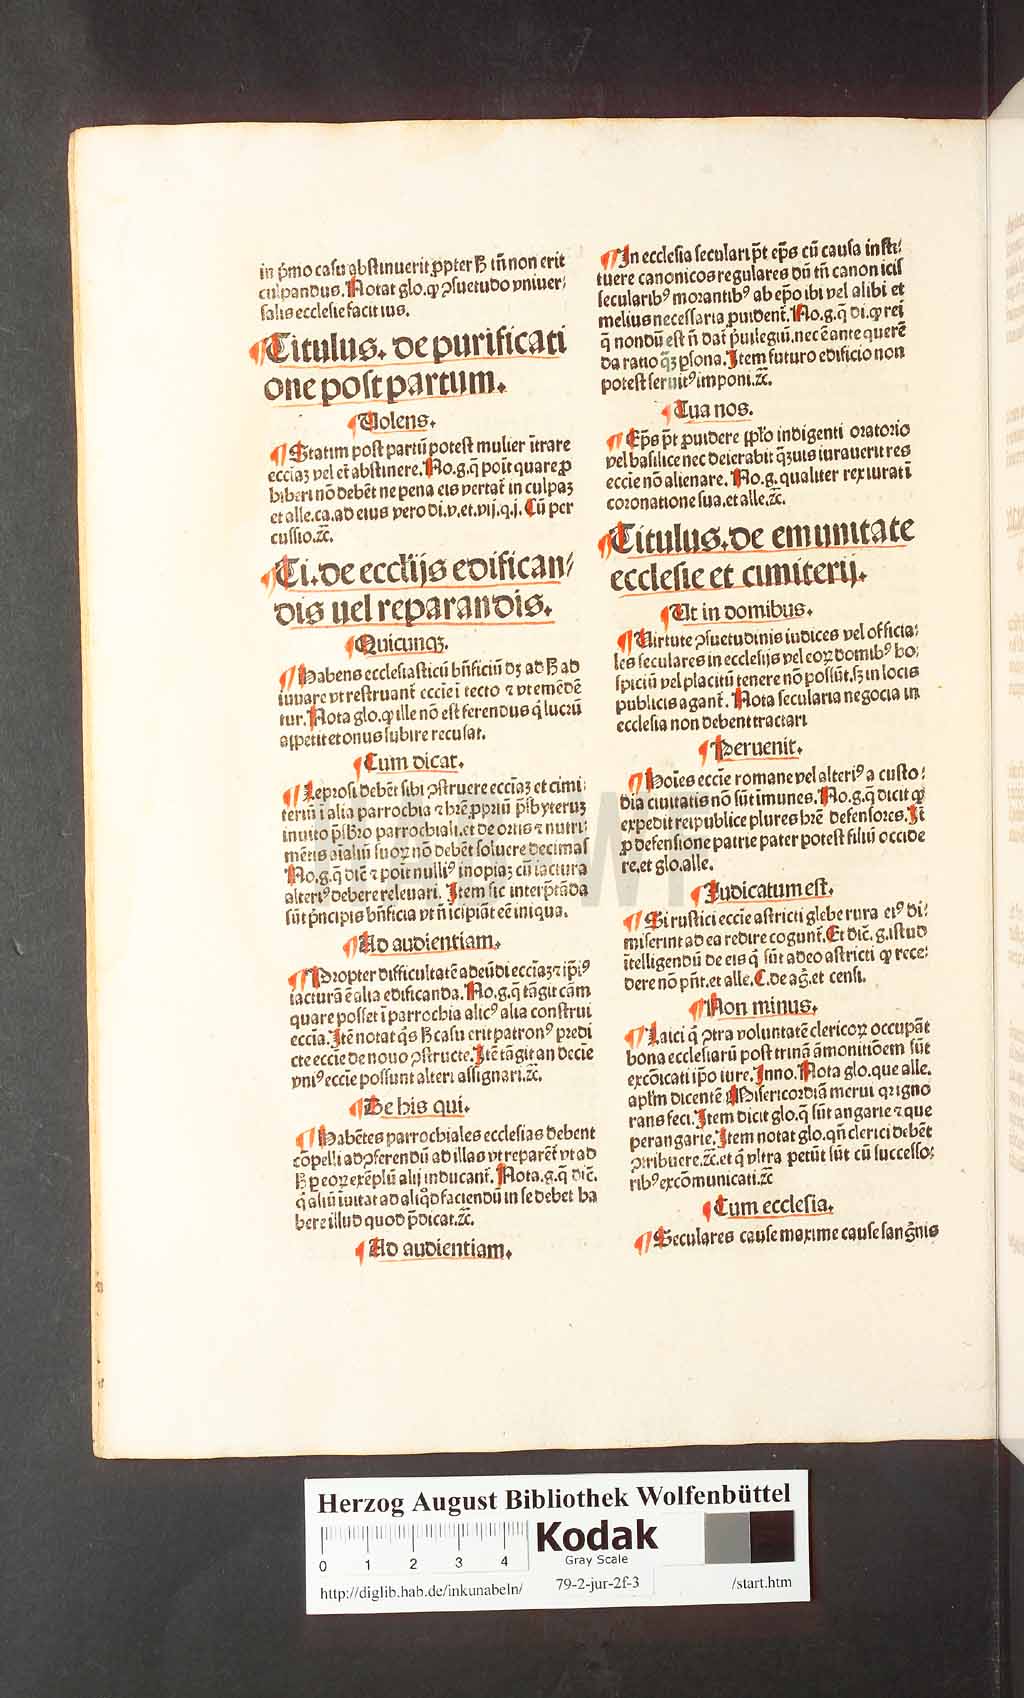 in p̄mo casu abstinuerit ꝓpter ħ tn̄ non erit
culpandus. Notat glo. ꝙ ꝯsuetudo vniuer⸗
salis ecclesie facit ius.
¶Titulus. de purificati
one post partum.
¶Volens.
¶Statim post partū potest mulier ītrare
ecciaꝫ vel et̄ abstinere. No.g.q̄ poīt quare ꝓ
hiberi nō debēt ne pena eis vertat̄ in culpaꝫ
et alle.ca.ad eius vero di.v.et.vij.q.j. Cū per
cussio.ꝛc̄.
¶Ti. de eccl'ijs edifican⸗
dis uel reparandis.
¶Quicunqꝫ.
¶Habens ecclesiasticū bn̄ficiū dꝫ ad ħ ad
iuuare vt restruant̄ eccie i tecto ⁊ vt emēdē
tur. Nota glo.ꝙ ille nō est ferendus q̇ lucrū
appetit et onus subire recusat.
¶Cum dicat.
¶Leprosi debēt sibi ꝯstruere ecciaꝫ et cimi⸗
teriū ī alia parrochia ⁊ hr̄e ꝓpriū p̄sbyteruꝫ
inuito p̄sbr̄o parrochiali.et de ortis ⁊ nutri⸗
mētis aīaliū suoꝝ nō debēt soluere decimas
No.g.q̄ dic̄ ⁊ poīt nulliꝰ inopiaꝫ cū iactura
alteriꝰ debere releuari. Item sic interp̄tāda
sūt p̄ncipis bn̄ficia vt n̄ īcipiāt eē iniqua.
¶Ad audientiam.
¶Propter difficultatē adeūdi ecciaꝫ ⁊ ip̄iꝰ
iacturā ē alia edificanda. No.g.q̄ tāgit cām
quare posset ī parrochia alicꝰ alia construi
eccia. Itē notat q̇s ħ casu erit patronꝰ predi
cte eccie de nouo ꝯstructe. Itē tāgit an decie
vniꝰ eccie possunt alteri assignari.ꝛc̄.
¶De his qui.
¶Habētes parrochiales ecclesias debent
cōpelli ad ꝯferendū ad illas vt reparēt̄ vt ad
ħ ꝑ eoꝝ exēplū alij inducant̄. Nota.g.q̄ dic̄.
q̇ aliū īuitat ad aliq̇d faciendū in se debet ha
bere illud quod p̄dicat.ꝛc̄.
¶Ad audientiam.
¶In ecclesia seculari p̄t ep̄s cū causa insti⸗
tuere canonicos regulares dū tn̄ canonicis
secularibꝰ morantibꝰ ab ep̄o ibi vel alibi et
melius necessaria ꝓuident̄. No.g.q̄ di.ꝙ rei
q̄ nondū est n̄ dat̄ p̄uilegiū.nec ē ante querē
da ratio qꝫ ꝑsona. Item futuro edificio non
potest seruitꝰ imponi.ꝛc̄.
¶Tua nos.
¶Ep̄s p̄t ꝓuidere ꝓpl'o indigenti oratorio
vel basilice nec deierabit qꝫuis iurauerit res
eccie nō alienare. No.g. qualiter rex iurat ī
coronatione sua.et alle.ꝛc̄.
¶Titulus. de emunitate
ecclesie et cimiterij.
¶Ut in domibus.
¶Virtute ꝯsuetudinis iudices vel officia⸗
les seculares in ecclesijs vel eoꝝ domibꝰ ho⸗
spiciū vel placitū tenere nō possūt.sꝫ in locis
publicis agant̄. Nota secularia negocia in
ecclesia non debent tractari
¶Peruenit.
¶Hoīes eccie romane vel alteriꝰ a custo⸗
dia ciuitatis nō sūt īmunes. No.g.q̄ dicit ꝙ
expedit reipublice plures hr̄e defensores. It̄
ꝓ defensione patrie pater potest filiū occide
re.et glo.alle.
¶Judicatum est.
¶Si rustici eccie astricti glebe rura eiꝰ di⸗
miserint ad ea redire cogunt̄. Et dic̄. g.istud
ītelligendū de eis q̇ sūt adeo astricti ꝙ rece⸗
dere nō pn̄t.et alle. C.de aġ.et censi.
¶Non minus.
¶Laici q̇ ꝯtra voluntatē clericoꝝ occupāt
bona ecclesiarū post trinā āmonitiōem sūt
excōicati ip̄o iure. Inno. Nota glo.que alle.
apl'm dicentē Misericordiā merui qꝛ igno
rans feci. Item dicit glo.q̄ sūt angarie ⁊ que
perangarie. Item notat glo.qn̄ clerici debēt
ꝯtribuere.ꝛc̄.et q̇ vltra petūt sūt cū successo⸗
ribꝰ excōmunicati.ꝛc̄
¶Cum ecclesia.
¶Seculares cause maxime cause sang̓nis
HAB WF
Herzog August Bibliothek Wolfenbüttel
0 1 2 3 4
Kodak
Gray Scale
http://diglib.hab.de/inkunabeln/ 79-2-jur-2f-3 /start.htm